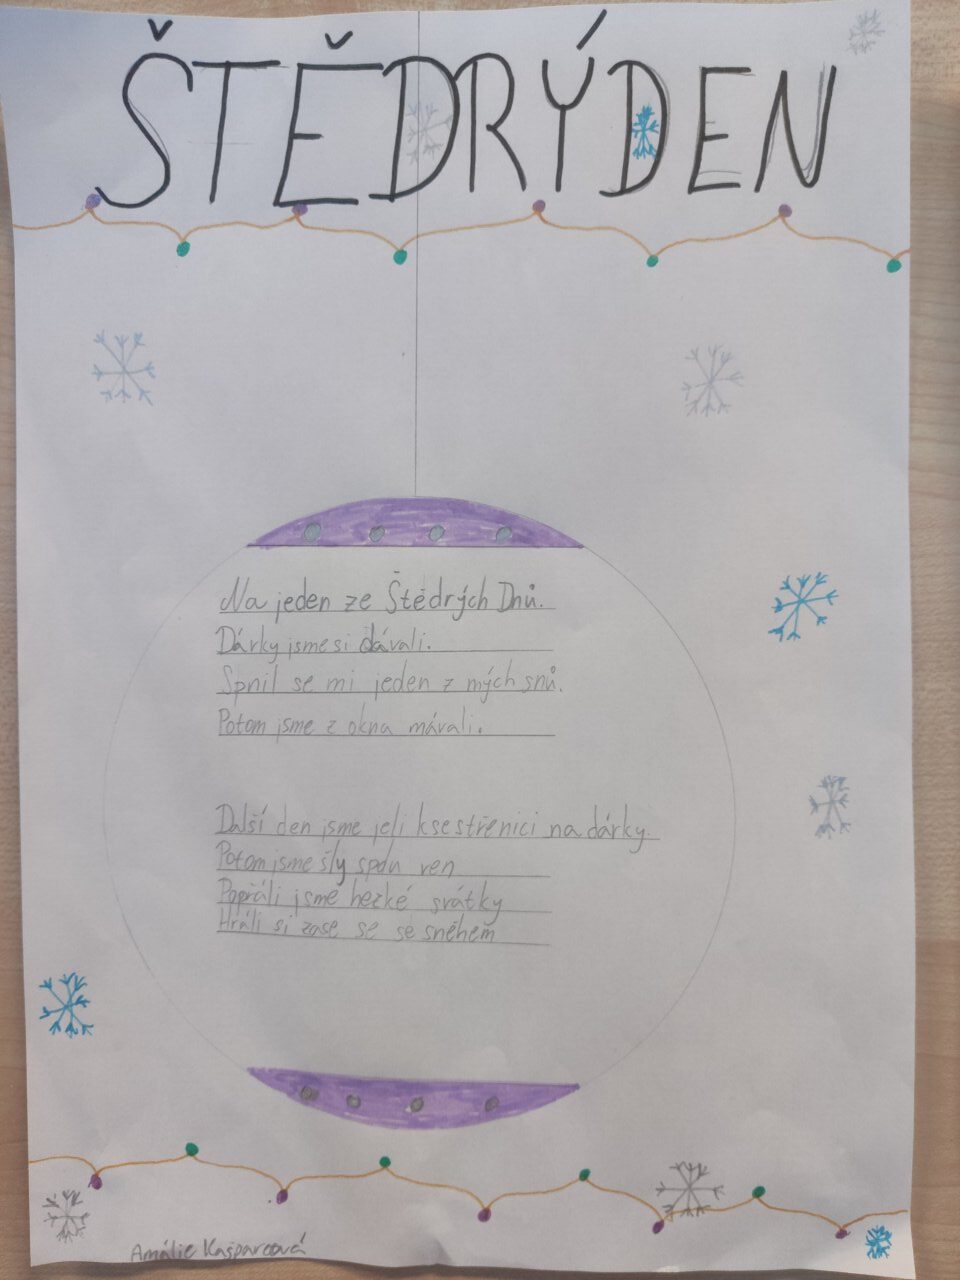 ŠTĚDRÝDEN
Na jeden ze Štědrých Dnů.
Dárky jsme si dávali.
Spnil se mi jeden z mých snů.
Potom jsme z okna mávali.
Další den jsme jeli ksestřenici na dárky.
Potom jsme šly ven
Popřáli jsme hezké svátky
Hráli si zase se se sněhem
Amálie Kašparcová